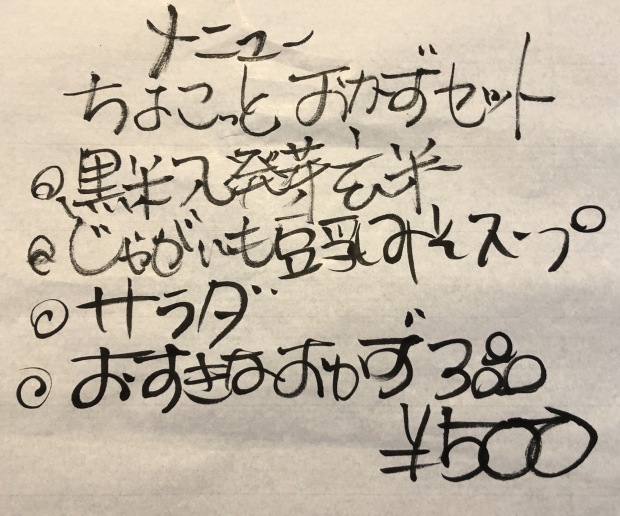 メニュー
ちょこっとおかずセット
黒米入発芽玄米
じゃがいも豆乳みそスープ
サラダ
おすきなおかず3品
¥500